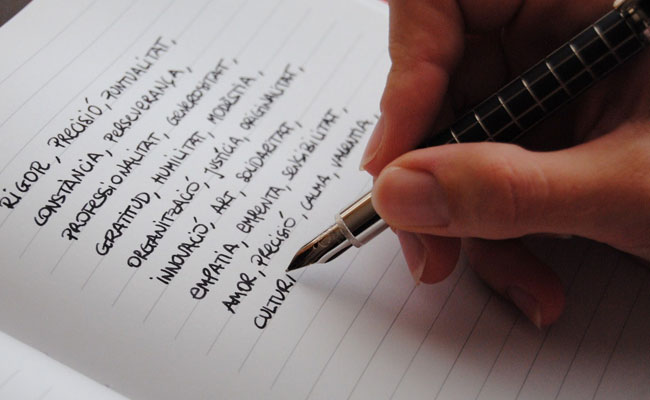 RIGOR, PRECISIÓ, PUNTUALITAT,
CONSTÀNCIA, PERSEVERANÇA,
PROFESSIONALITAT, GENEROSITAT,
GRATITUD, HUMILITAT, MODESTIA,
ORGANITZACIÓ, JUSTÍCIA, ORIGINALITAT,
INNOVACIÓ, ART, SOLIDARITAT,
EMPATIA, EMPENTA, SENSIBILITAT
AMOR, PRECISIÓ, CALMA, VALENTIA,
CULTUR